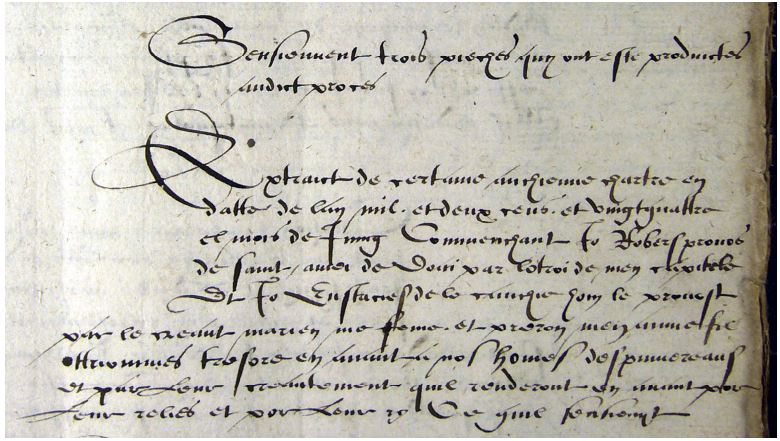 Sensieuvent trois pieches quy ont este produictes
audict proces
Extraict de certaine anchienne chartre en
datte de lan mil et deux cens et vingtquattre
el mois de Juing Commenchant Jo Robers provos
de saint amei de Douai par lotroi de men capitele
Et Jo Eustacies de le hom le provost
par le creant marien me feme et men aunei fil
ottroiommes tresore en avant a nos homes despinnereaus
et pour leur creantement quil renderont en avant por
leur reliés et por leur Ce quil